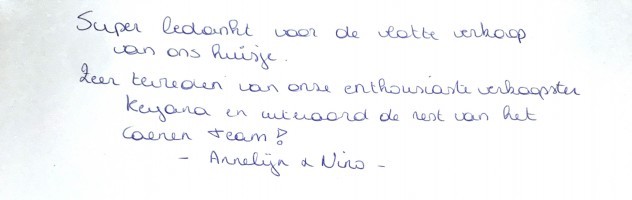 Super bedankt voor de vlotte verkoop
van ons huisje.
Zeer tevreden van onze enthousiaste verkoopster
Keyana en uiteraard de rest van het
Caenen team!
- Annelijn & Nino -